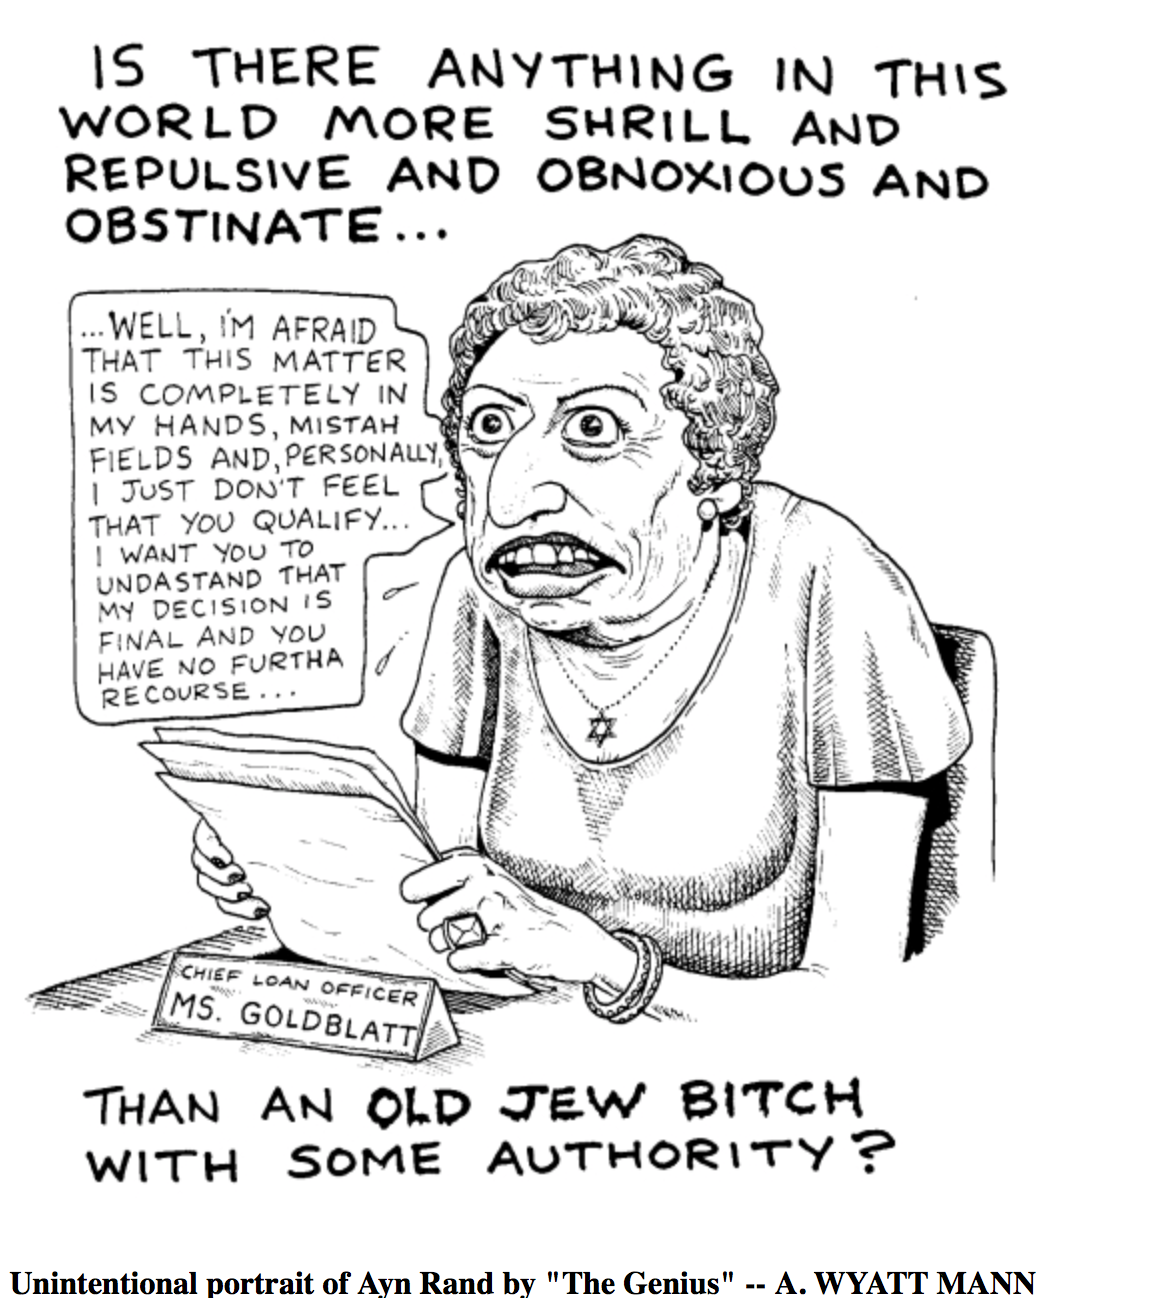 IS THERE ANYTHING IN THIS
WORLD MORE SHRILL AND
REPULSIVE AND OBNOXIOUS AND
OBSTINATE...
...WELL, I'M AFRAID
THAT THIS MATTER
IS COMPLETELY IN
MY HANDS, MISTAH
FIELDS AND, PERSONALLY,
I JUST DON'T FEEL
THAT YOU QUALIFY...
I WANT YOU TO
UNDASTAND THAT
MY DECISION IS
FINAL AND YOU
HAVE NO FURTHA
RECOURSE...
CHIEF LOAN OFFICER
MS. GOLDBLATT
THAN AN OLD JEW BITCH
WITH SOME AUTHORITY?
Unintentional portrait of Ayn Rand by "The Genius" -- A. WYATT MANN